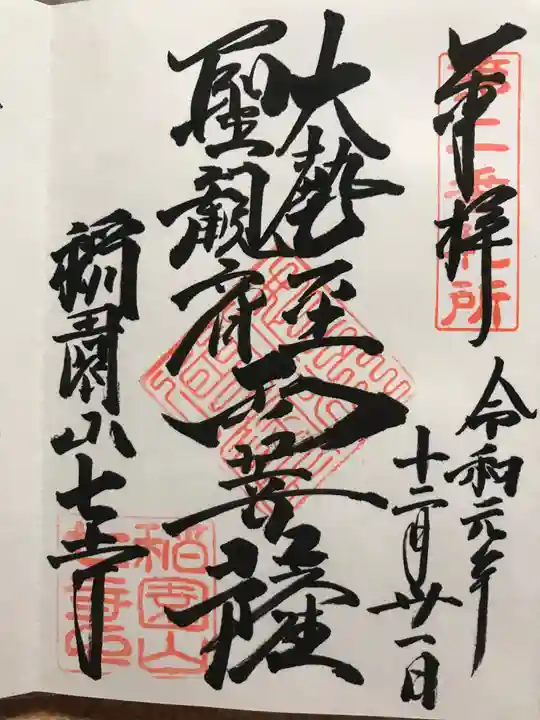 奉拝
第二番札所
令和元年
十二月廿一日
大勢至
聖観音
両菩薩
稲園山七寺
稲園山
七寺印